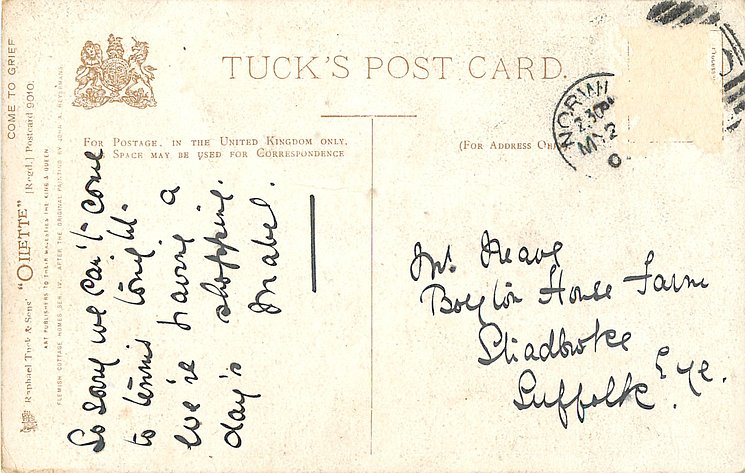 COME TO GRIEF
Raphael Tuck & Sons' "OILETTE" [Regd.] Postcard 9010.
ART PUBLISHERS TO THEIR MAJESTIES THE KING & QUEEN.
FLEMISH COTTAGE HOMES SER. IV. AFTER THE ORIGINAL PAINTING BY
TUCK'S POST CARD.
FOR POSTAGE. IN THE UNITED KINGDOM ONLY,
SPACE MAY BE USED FOR CORRESPONDENCE
(FOR ADDRESS
NORWI
2.30PM
MY 2
0
So sorry we can't come
to tennis tonight.
We're having a
day's shopping.
Mabel.
Mr Neave
Boyton House Farm
Stradbroke
Eye.
Suffolk.